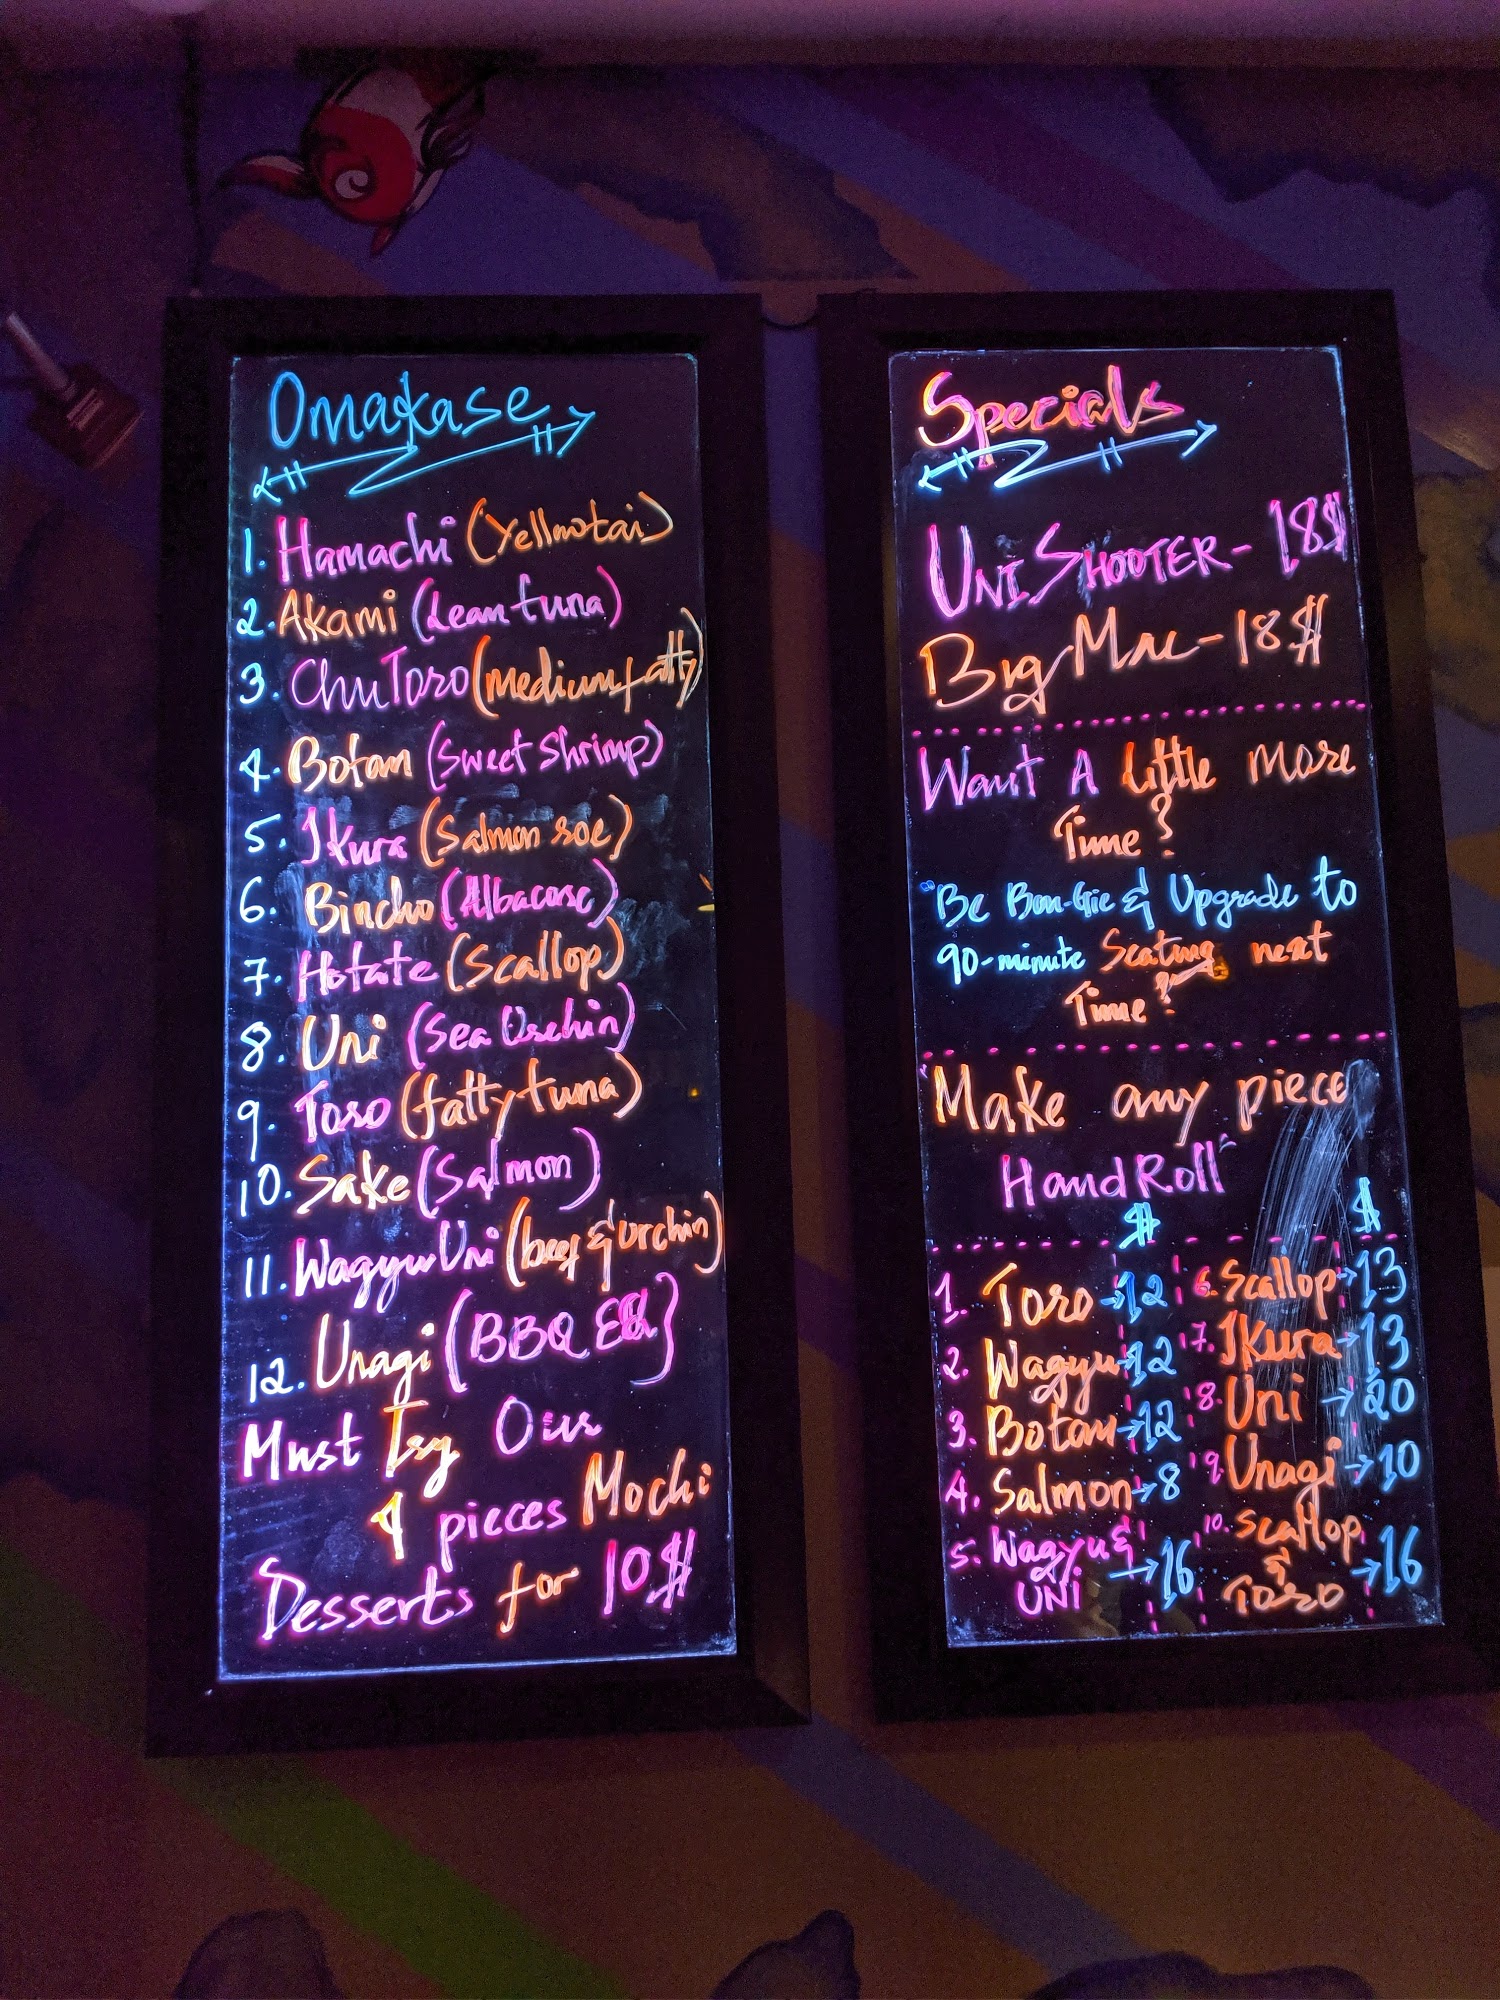 Omakase
1. Hamachi (Yellowtai)
2. Akami (Lean tuna)
3. ChuToro (medium fatty)
4. Botan (Sweet Shrimp)
5. Ikura (Salmon roe)
6. Bincho (Albacore)
7. Hotate (Scallop)
8. Uni (Sea Urchin)
9. Toro (fatty tuna)
10. Sake (Salmon)
11. Wagyu Uni (beef & urchin)
12. Unagi (BBQ Eel)
Must Try Our
4 pieces Mochi
Desserts for 10$
Specials
UNI SHOOTER - 18$
Big Mac - 18$
Want A Little More
Time?
"Be Bou-Gie & Upgrade to
90-minute Seating next
Time?"
"Make any piece
Hand Roll"
$ $
1. Toro → 12
2. Wagyu → 12
3. Botan → 12
4. Salmon → 8
5. Wagyu &
UNI → 16
6. Scallop → 13
7. Ikura → 13
8. Uni → 20
9. Unagi → 10
10. Scallop
& Toro → 16